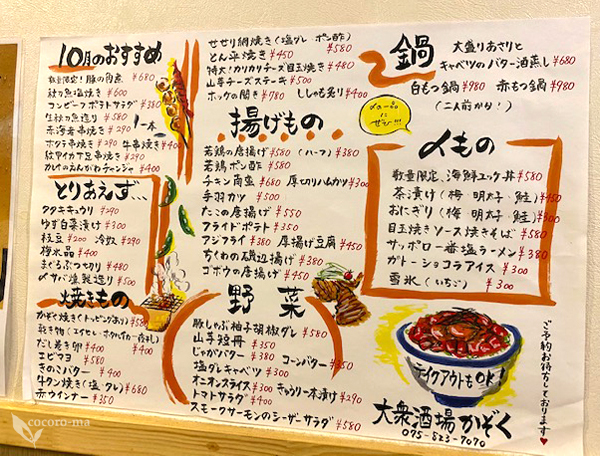 10月のおすすめ
数量限定！豚の角煮 ¥680
秋刀魚塩焼き ¥600
コンビーフポテトサラダ ¥380
生秋刀魚造り ¥580
赤海老串焼き ¥290 一本
ホタテ串焼き ¥290 牛串焼き ¥400
紋甲イカ下足串焼き ¥290
カレイのえんがわチャンジャ ¥400
とりあえず…
タタキキュウリ ¥290
ゆず白菜漬け ¥300
枝豆 ¥200 冷奴 ¥290
梅水晶 ¥400
まぐろぶつ切り ¥480
〆サバ燻製造り ¥500
焼きもの
かぞく焼き(トッピングあり) ¥580
だし巻き卵 ¥400
エビマヨ ¥580
きのこバター ¥400
牛タン焼き(塩・タレ) ¥680
赤ウインナー ¥350
せせり網焼き(塩ダレ ポン酢) ¥580
とん平焼き ¥500
特大！カリカリチーズ目玉焼き ¥480
山芋チーズステーキ ¥500
ホッケの開き ¥780 ししゃも炙り ¥400
揚げもの
若鶏の唐揚げ ¥580 (ハーフ) ¥380
若鶏ポン酢 ¥580
チキン南蛮 ¥680 厚切りハムカツ ¥300
手羽カツ ¥500
たこの唐揚げ ¥550
フライドポテト ¥350
アジフライ ¥380 厚揚げ豆腐 ¥450
ちくわの磯辺揚げ ¥380
ゴボウの唐揚げ ¥450
野菜
豚しゃぶ柚子胡椒ダレ ¥580
山芋短冊 ¥350
じゃがバター ¥380 コーンバター ¥350
塩ダレキャベツ ¥300
オニオンスライス ¥300 きゅうり一本漬け ¥290
トマトサラダ ¥400
スモークサーモンのシーザーサラダ ¥580
鍋
大盛りあさりと
キャベツのバター酒蒸し ¥680
白もつ鍋 ¥980 赤もつ鍋 ¥980
(二人前から！)
〆の一品
に
ぜひ!!
〆もの
数量限定、海鮮ユッケ丼 ¥580
茶漬け(梅 明太子 鮭) ¥450
おにぎり(梅 明太子 鮭)
目玉焼きソース焼きそば ¥580
サッポロ一番塩ラーメン ¥380
ガトーショコラアイス ¥300
雪氷(いちご) ¥300
テイクアウトもOK！
ご予約お待ちしております♥
大衆酒場かぞく
075-823-7070
cocoro-ma